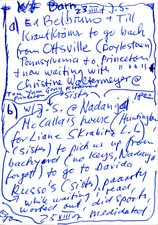 Barn 23 VIII J.S.
a) Ed Belbruno + Till
Krautkrämer to go back
from Ottsville (Doylestown)
Pennsylvania to Princeton
+ now waiting with
Christine Westermeyer @
b) W/ J.S. @ Nadanga
McCalla's house (Huntington
for Liane Skrabitz L.I.)
(sists) to pick us up (from
backyard (no keys, Nadanga
forgot) to go to Davida
Russo's (sists) paaarty
while waiting I read,
worked out, did sports,
25 VIII meditated